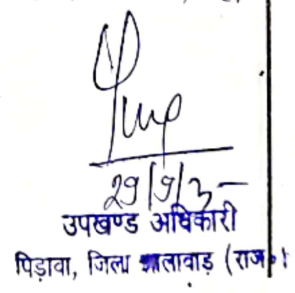 29/9/3
उपखण्ड अधिकारी
पिड़ावा, जिला झालावाड़ (राज०)